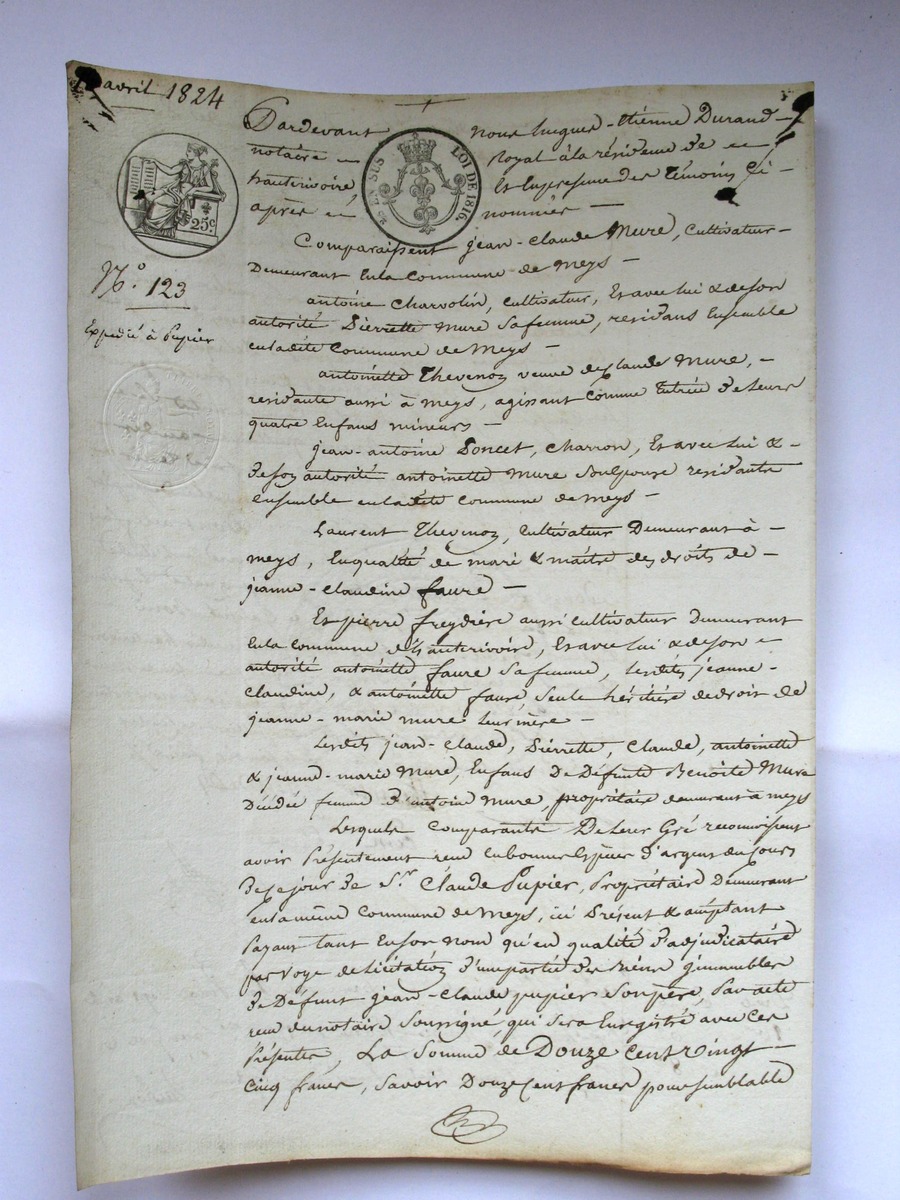 avril 1824
Pardevant nous hugues-étienne Durand
notaire Royal à la résidence de
hauterivoire, Et En presence des Témoins Ci
après nommés
EN SUS LOI DE 1816.
25c
N.° 123
Expedié à Pupier
Comparaissent jean-Claude Mure, Cultivateur
Demeurant En la Commune de Meys
antoine Charvolin, Cultivateur, Et avec lui & de son
autorité Pierrette Mure Sa femme, residans Ensemble
en ladite Commune de Meys
antoinette Thevenoz veuve de Claude Mure,
residante aussi à Meys, agissant Comme Tutrice de Leurs
quatre Enfans mineurs
jean-antoine Poncet, Charron, Et avec Lui &
de son autorité antoinette Mure Son Epouse residants
ensemble en ladite Commune de Meys
Laurent Thevenoz, Cultivateur Demeurant à
Meys, En qualité de mari & maître des droits de
jeanne-Claudine faure
Et pierre freydière aussi cultivateur demeurant
En la Commune d'hauterivoire, Et avec lui & de son
autorité antoinette faure Sa femme, lesdites jeanne-
Claudine, & antoinette faure, Seules héritières de droit de
jeanne-marie mure leur mère
Lesdits jean-Claude, Pierrette, Claude, antoinette
& jeanne-marie Mure, Enfans De Défunte Benoite Mure
Décédée femme d'antoine Mure, propriétaire demeurant à Meys
Lesquels Comparants De Leur Gré reconnoissent
avoir Présentement reçu en bonnes Espèces d'argent du Cours
de ce jour de S.r Claude Pupier, Propriétaire Demeurant
en la même Commune de Meys, ici Présent & acceptant
Payant tant En son Nom qu'en qualité d'adjudicataire
par Voye de licitation d'une partie des Biens immeubles
de Défunt jean-Claude pupier Son père, Par acte
reçu du notaire Soussigné qui Sera Enregistré avec Ces
Présentes, La Somme de Douze Cent Vingt
Cinq francs, Savoir Douze Cent francs pour semblable